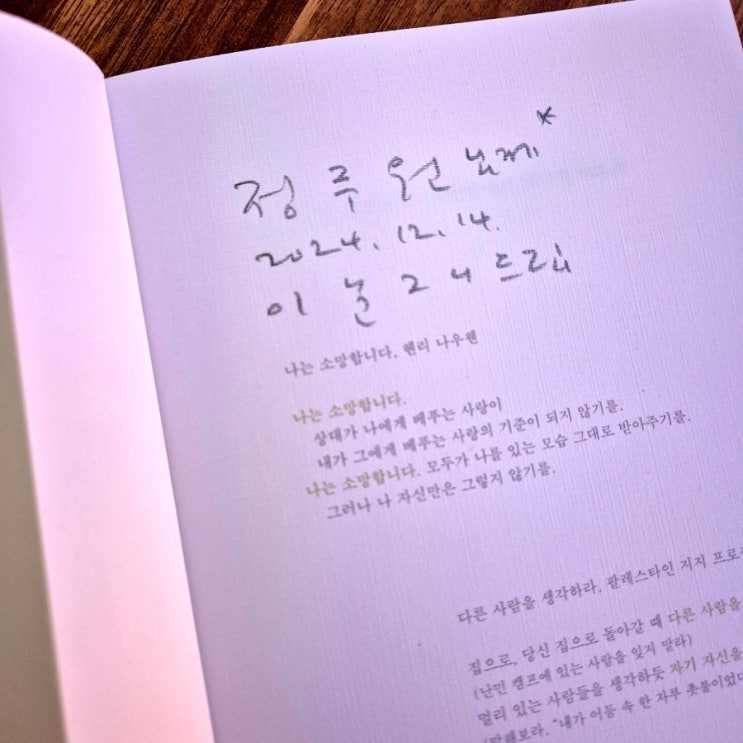 정루원님께*
2024. 12. 14.
이날그너드림
나는 소망합니다. 헨리 나우웬
나는 소망합니다.
상대가 나에게 베푸는 사랑이
내가 그에게 베푸는 사랑의 기준이 되지 않기를.
나는 소망합니다. 모두가 나를 있는 모습 그대로 받아주기를.
그러나 나 자신만은 그렇지 않기를.
다른 사람을 생각하라. 팔레스타인 지지
집으로, 당신 집으로 돌아갈 때 다른 사람을
(난민 캠프에 있는 사람을 잊지 말라)
멀리 있는 사람들을 생각하듯 자기 자신을
(말해보라. "내가 어둠 속 한 자루 촛불이었다